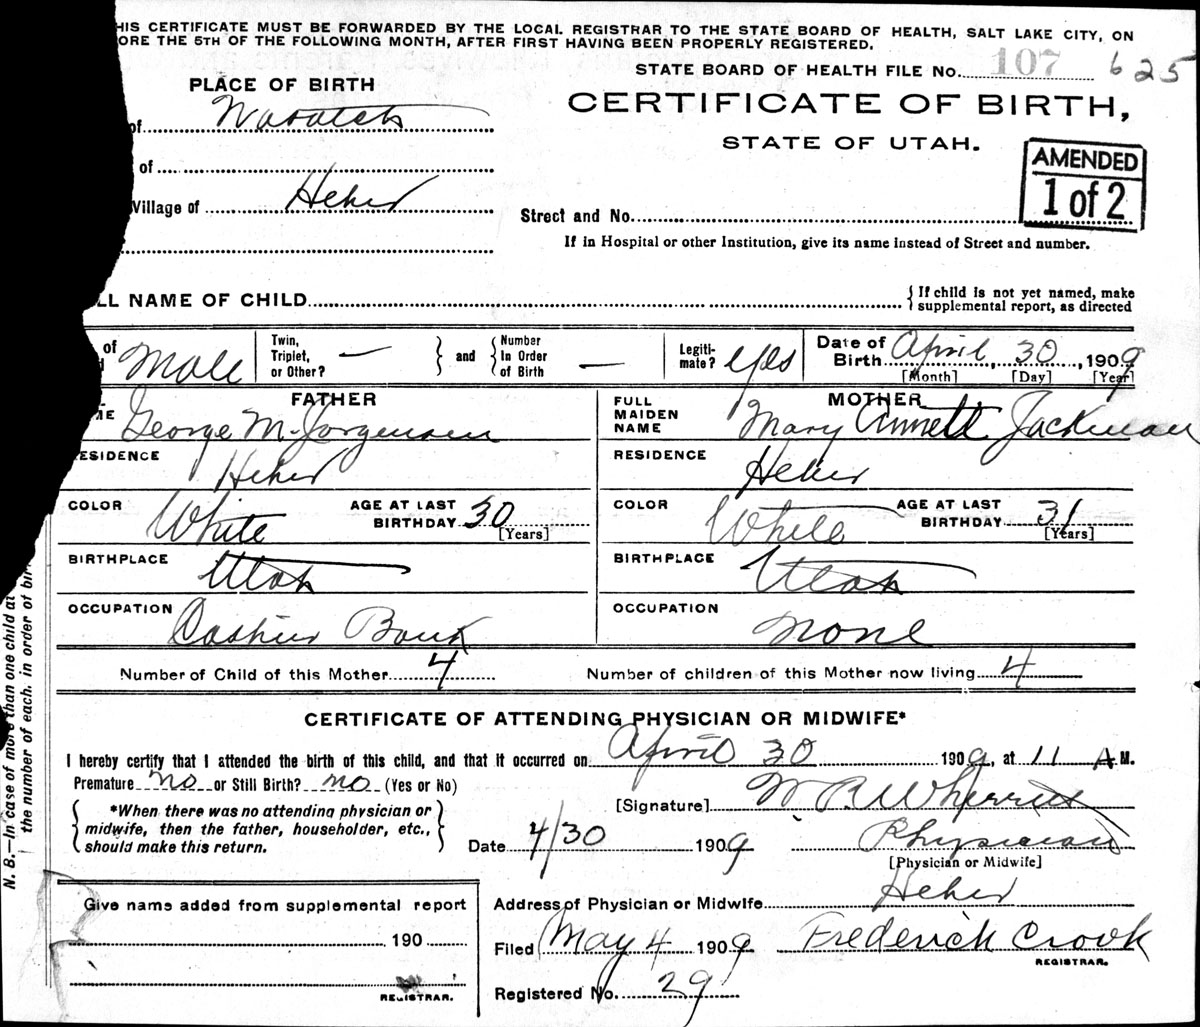 HIS CERTIFICATE MUST BE FORWARDED BY THE LOCAL REGISTRAR TO THE STATE BOARD OF HEALTH, SALT LAKE CITY, ON
ORE THE 5TH OF THE FOLLOWING MONTH, AFTER FIRST HAVING BEEN PROPERLY REGISTERED.
STATE BOARD OF HEALTH FILE No. 107 625
PLACE OF BIRTH
CERTIFICATE OF BIRTH,
of Wasatch
STATE OF UTAH.
AMENDED
1 of 2
of
Village of Heber
Street and No.
If in Hospital or other Institution, give its name instead of Street and number.
LL NAME OF CHILD
{ If child is not yet named, make
supplemental report, as directed
of Male
Twin, Triplet, or Other? — } and { Number In Order of Birth —
Legiti-mate? yes
Date of Birth April 30, 1909
[Month] [Day] [Year]
FATHER
ME George M. Jorgensen
RESIDENCE Heber
COLOR White
AGE AT LAST BIRTHDAY 30
[Years]
BIRTHPLACE Utah
OCCUPATION Cashier Bank
MOTHER
FULL MAIDEN NAME Mary Annett Jackman
RESIDENCE Heber
COLOR White
AGE AT LAST BIRTHDAY 31
[Years]
BIRTHPLACE Utah
OCCUPATION None
Number of Child of this Mother 4
Number of children of this Mother now living 4
CERTIFICATE OF ATTENDING PHYSICIAN OR MIDWIFE*
I hereby certify that I attended the birth of this child, and that it occurred on April 30 1909, at 11 A M.
Premature no or Still Birth? no (Yes or No)
{ *When there was no attending physician or
midwife, then the father, householder, etc.,
should make this return. }
[Signature] W R Wherritt
Date 4/30 1909 Physician
[Physician or Midwife]
Address of Physician or Midwife Heber
Filed May 4 1909 Frederick Crook
REGISTRAR.
Registered No. 29
Give name added from supplemental report
190
REGISTRAR.
N. B.—In case of more than one child at
the number of each, in order of bir